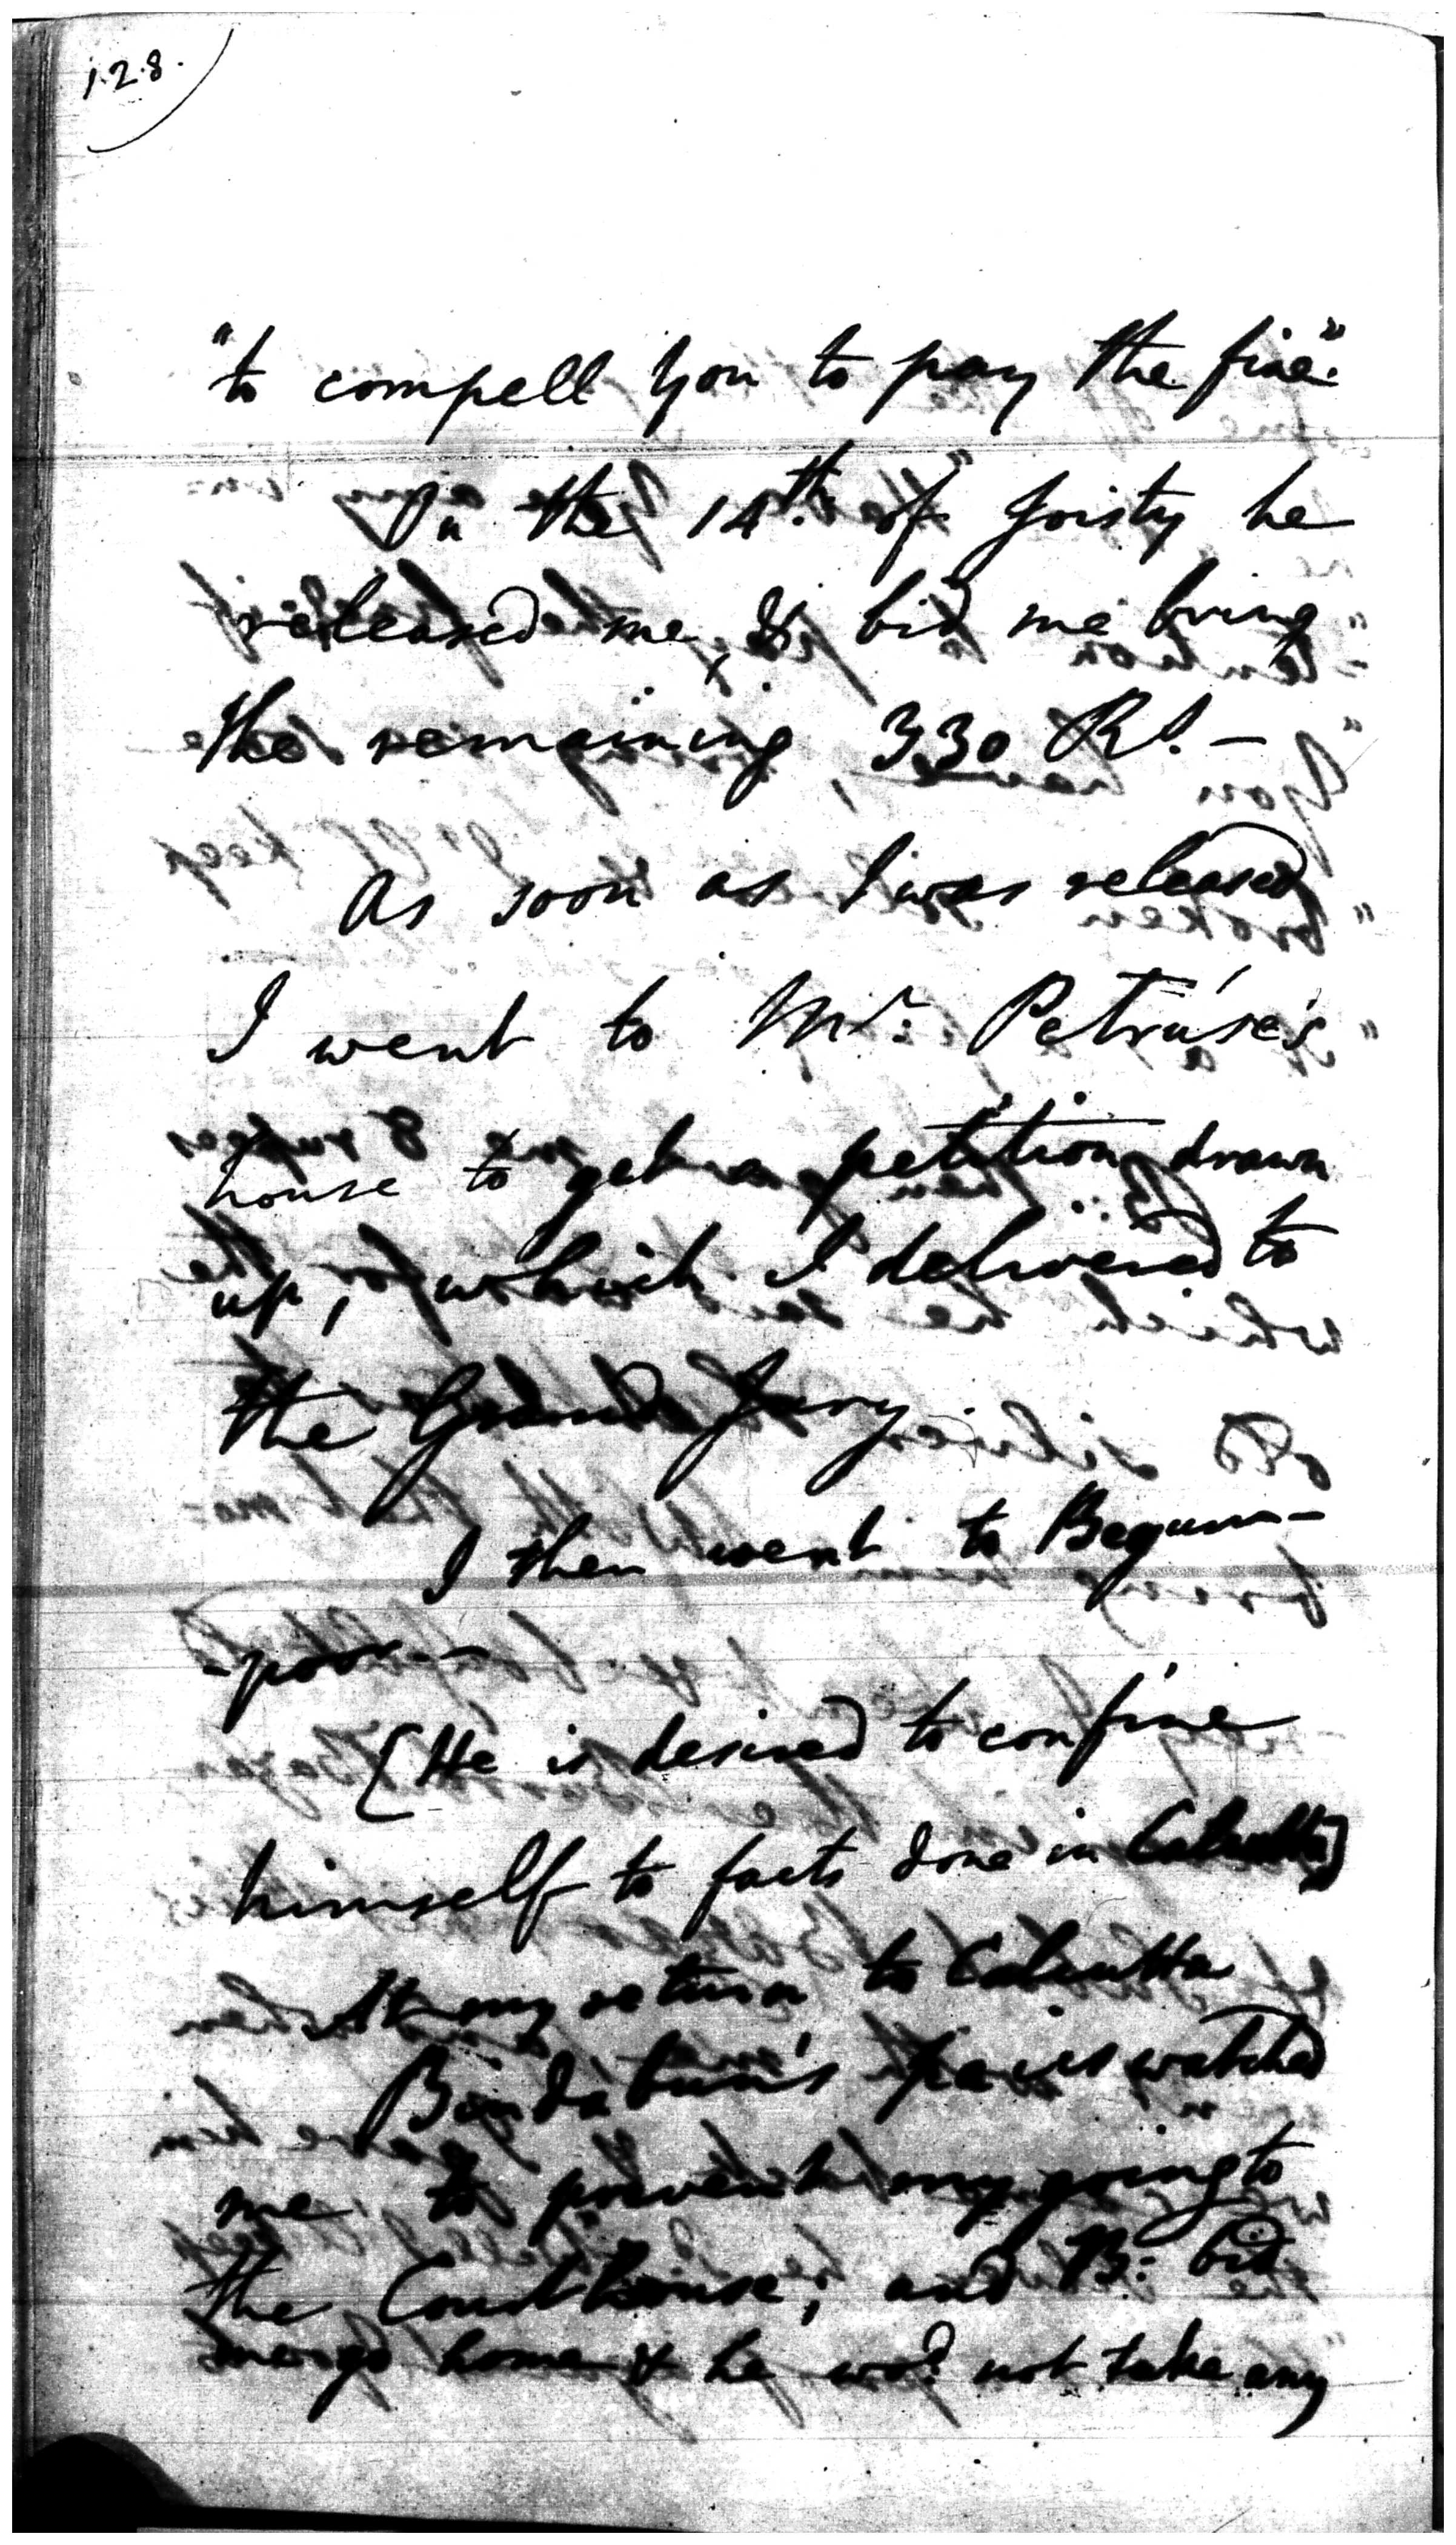 128.
"to compell you to pay the fine."
On the 14th. of Joisty he
released me, & bid me bring
the remaining 330 Rs. —
As soon as I was released
I went to Mr. Petruse's
house to get a petition drawn
up, which I delivered to
the Grand Jury.
I then went to Begum-
-poor —
[He is desired to confine
himself to facts done in Calcutta]
At my return to Calcutta
Bindabun's watched
me to prevent my going to
the Courthouse, and B: bid
me go home & he wod. not take any